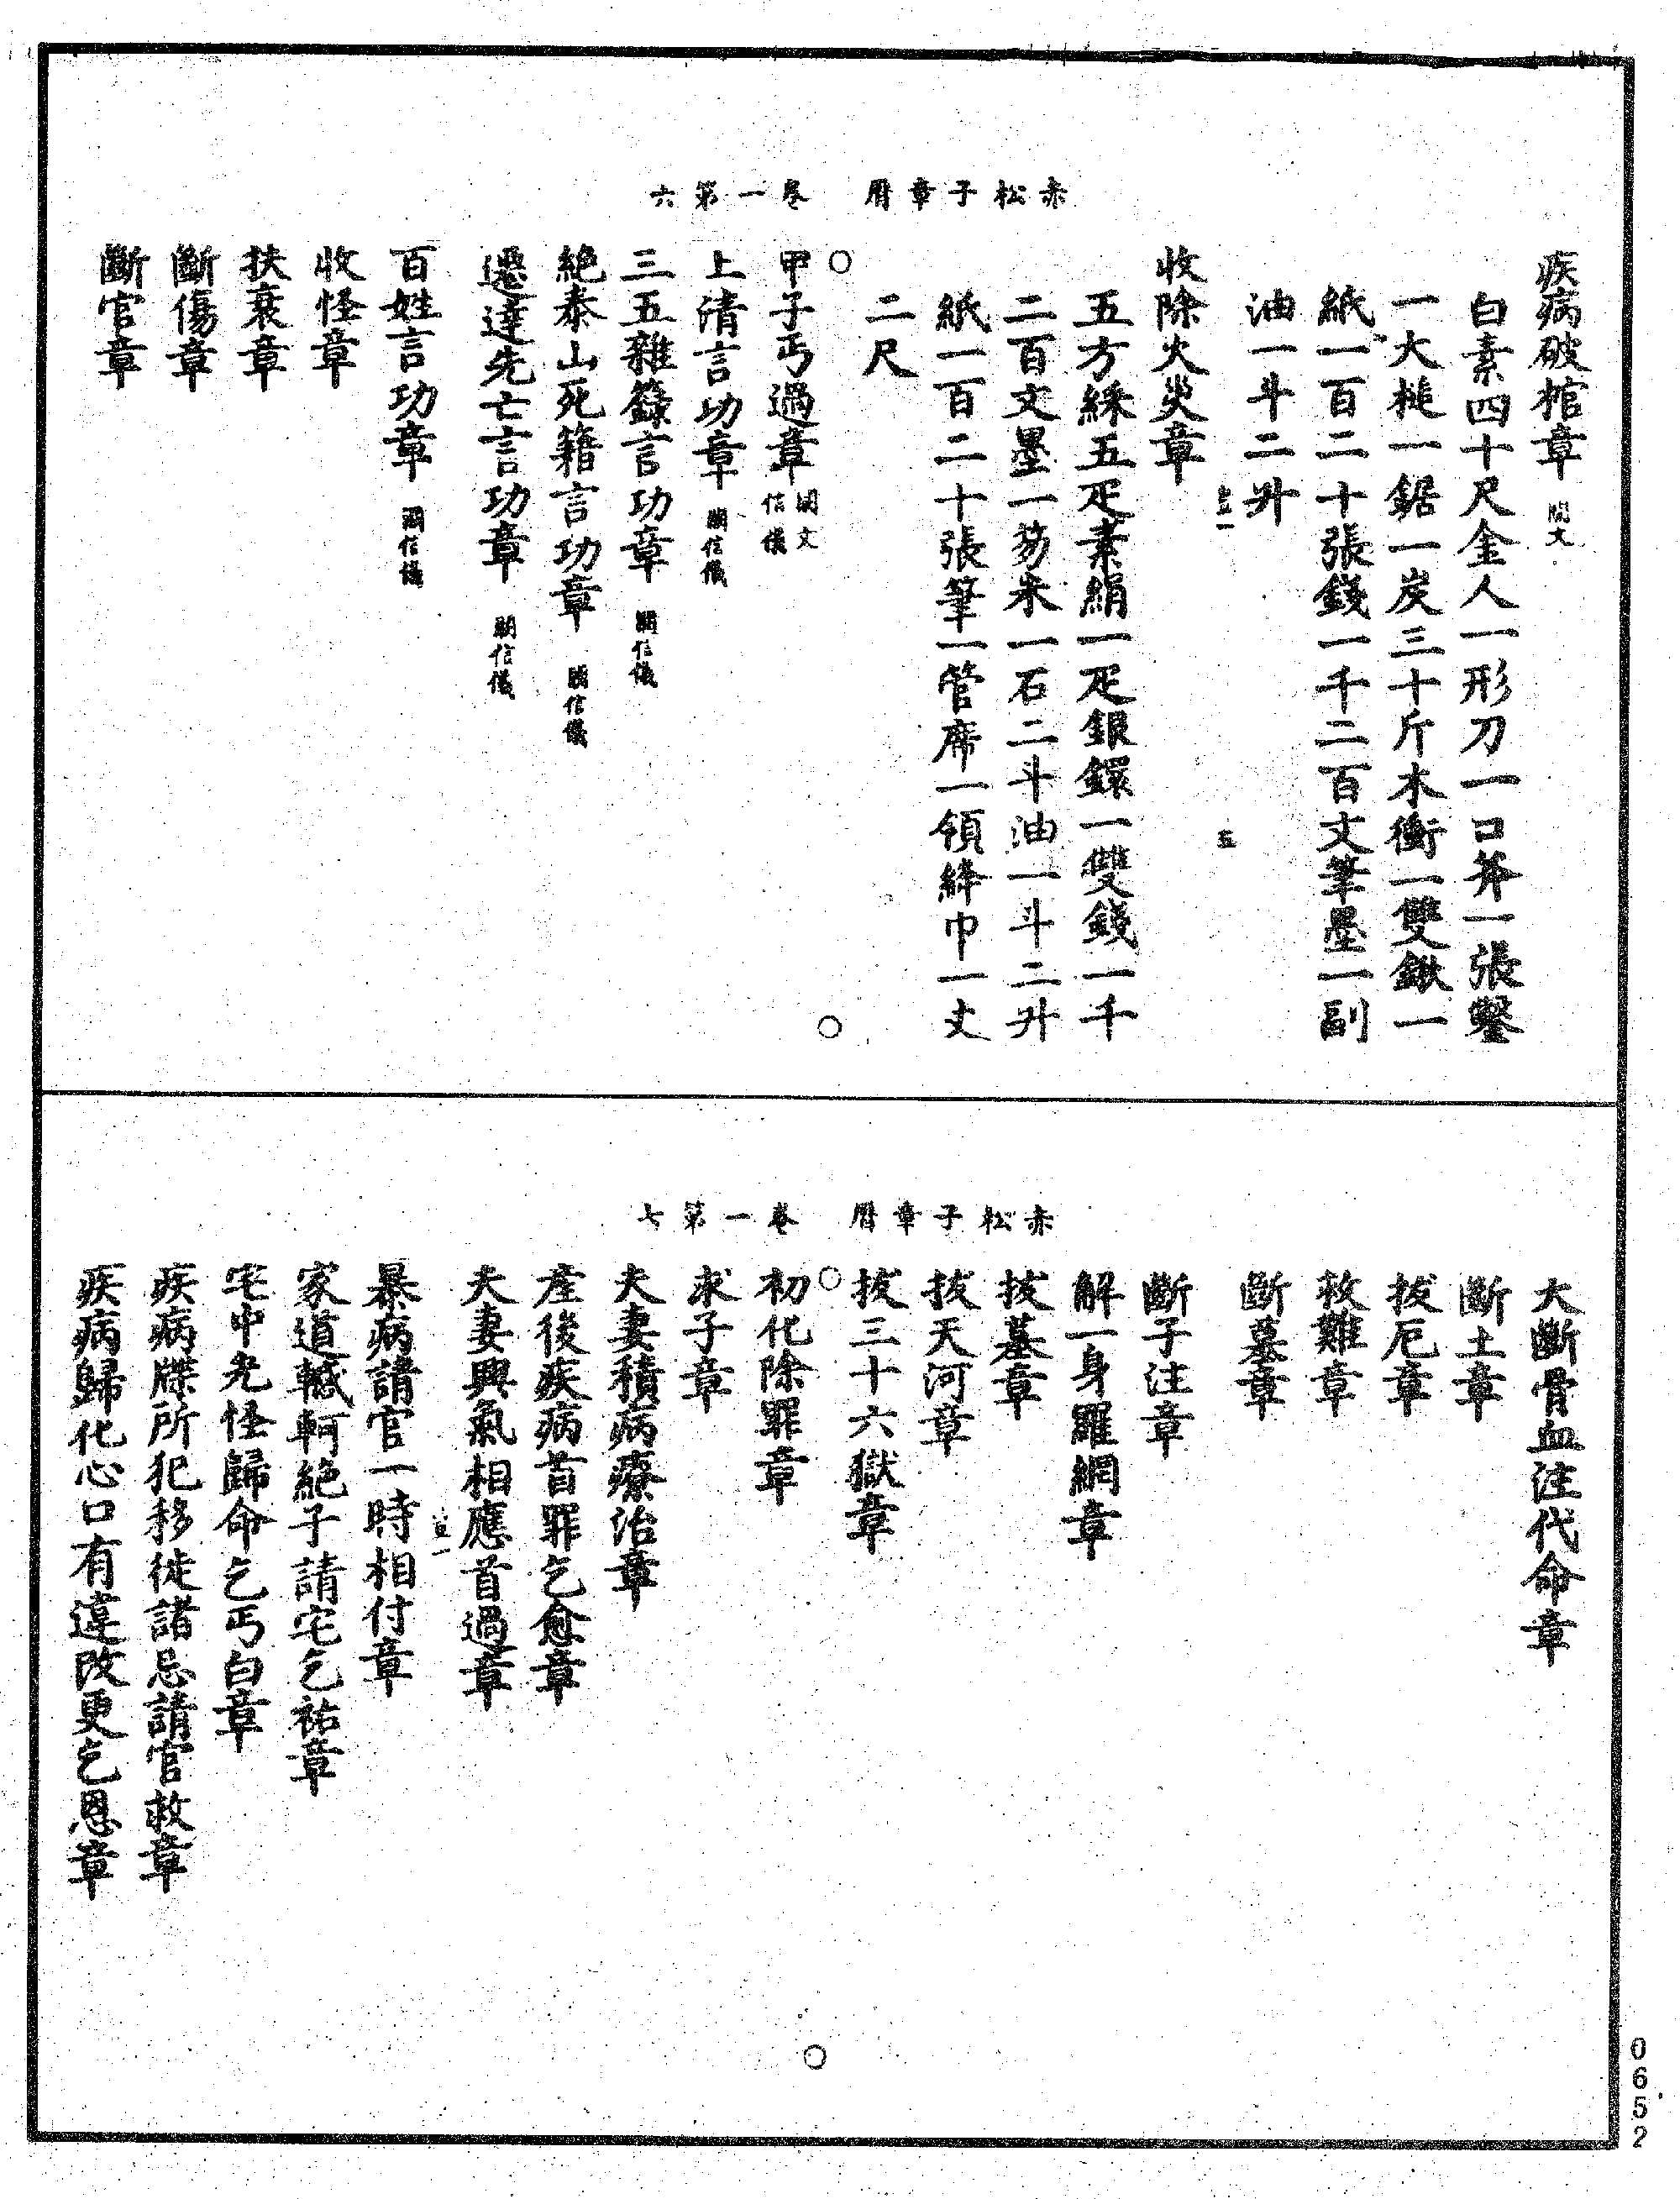 赤松子章曆　卷一第六
疾病破棺章　闕文
白素四十尺金人一形刀一口斧一張鑿
一大槌一鋸一炭三十斤木衡一雙鍬一
紙一百二十張錢一千二百文筆墨一副
油一斗二升
五
收除火災章
五方綵五疋素絹一疋銀鐶一雙錢一千
二百文墨一笏朱一石二斗油一斗二升
紙一百二十張筆一管席一領絳巾一丈
二尺
甲子丐過章　闕文信儀
上清言功章　闕信儀
三五雜籙言功章　闕信儀
絕泰山死籍言功章　闕信儀
遷達先亡言功章　闕信儀
百姓言功章　闕信儀
收怪章
扶衰章
斷傷章
斷官章
赤松子章曆　卷一第七
大斷骨血注代命章
斷土章
拔厄章
救難章
斷墓章
斷子注章
解一身羅網章
拔墓章
拔天河章
拔三十六獄章
初化除罪章
求子章
夫妻積病療治章
產後疾病首罪乞愈章
夫妻興氣相應首過章
暴病請官一時相付章
家道轗軻絕子請宅乞祐章
宅中光怪歸命乞丐白章
疾病牒所犯移徙諸忌請官救章
疾病歸化心口有違改更乞恩章
0652